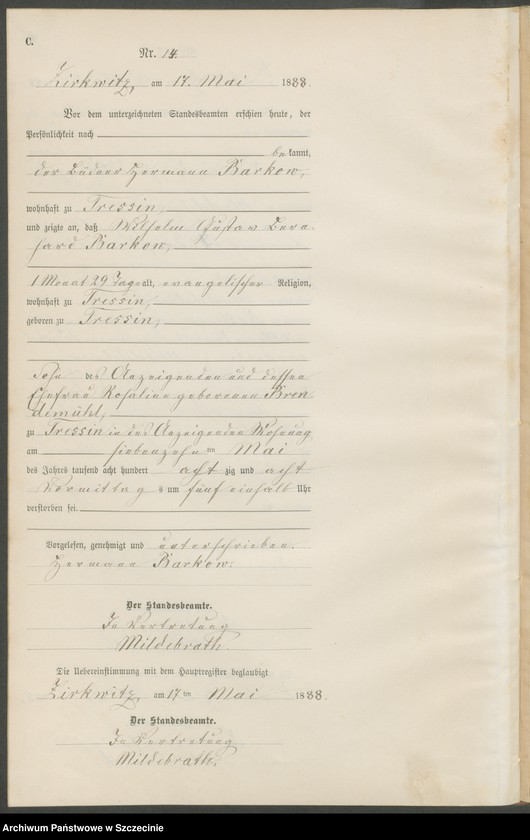 C.
Nr. 14.
Zirkwitz, am 17. Mai 1888.
Vor dem unterzeichneten Standesbeamten erschien heute, der
Persönlichkeit nach
be kannt,
der Büdner Hermann Barkow,
wohnhaft zu Tressin,
und zeigte an, daß Wilhelm Gustav Bern-
hard Barkow,
1 Monat 29 Tage alt, evangelischer Religion,
wohnhaft zu Tressin,
geboren zu Tressin,
Sohn des Anzeigenden und dessen
Ehefrau Rosaline geborenen Bren
demühl,
zu Tressin in des Anzeigenden Wohnung
am siebenzehn ten Mai
des Jahres tausend acht hundert acht zig und acht
Vormittag s um fünf einhalb Uhr
verstorben sei.
Vorgelesen, genehmigt und unterschrieben.
Hermann Barkow.
Der Standesbeamte.
In Vertretung
Mildebrath.
Die Uebereinstimmung mit dem Hauptregister beglaubigt
Zirkwitz, am 17 ten Mai 1888.
Der Standesbeamte.
In Vertretung
Mildebrath.
Archiwum Państwowe w Szczecinie